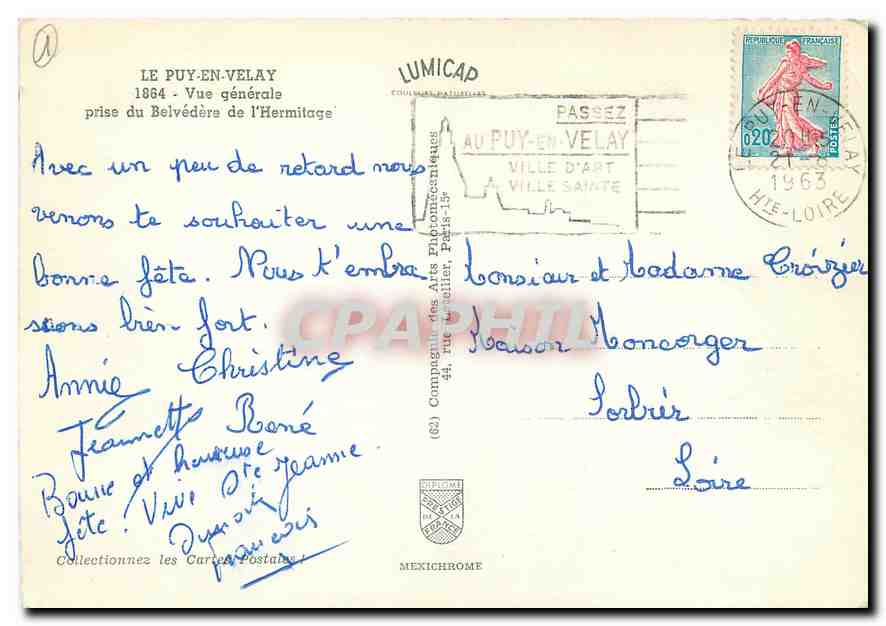 1
LE PUY-EN-VELAY
1864 - Vue générale
prise du Belvédère de l'Hermitage
LUMICAP
COULEURS NATURELLES
PASSEZ
AU PUY-EN-VELAY
VILLE D'ART
VILLE SAINTE
REPUBLIQUE FRANÇAISE
0,20
POSTES
LE PUY-EN-VELAY
1963
HTE-LOIRE
Avec un peu de retard nous
venons te souhaiter une
bonne fête. Nous t'embra
ssons bien fort.
Annie Christine
Jeannette René
Bonne et heureuse
fête! Vive Ste Jeanne.
François
Collectionnez les Cartes Postales!
(62) Compagnie des Arts Photomécaniques
44, rue Letellier, Paris-15e
Monsieur et Madame Croizier
Maison Moncorger
Sorbier
Loire
DIPLOME
PRESTIGE
DE LA
FRANCE
MEXICHROME
CPAPHIL